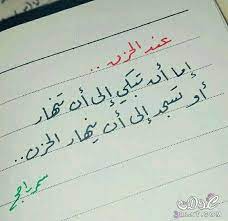 عند الحزن ...
إما أن تبكي إلى أن تنهار
أو تسجد إلى أن ينهار الحزن ..